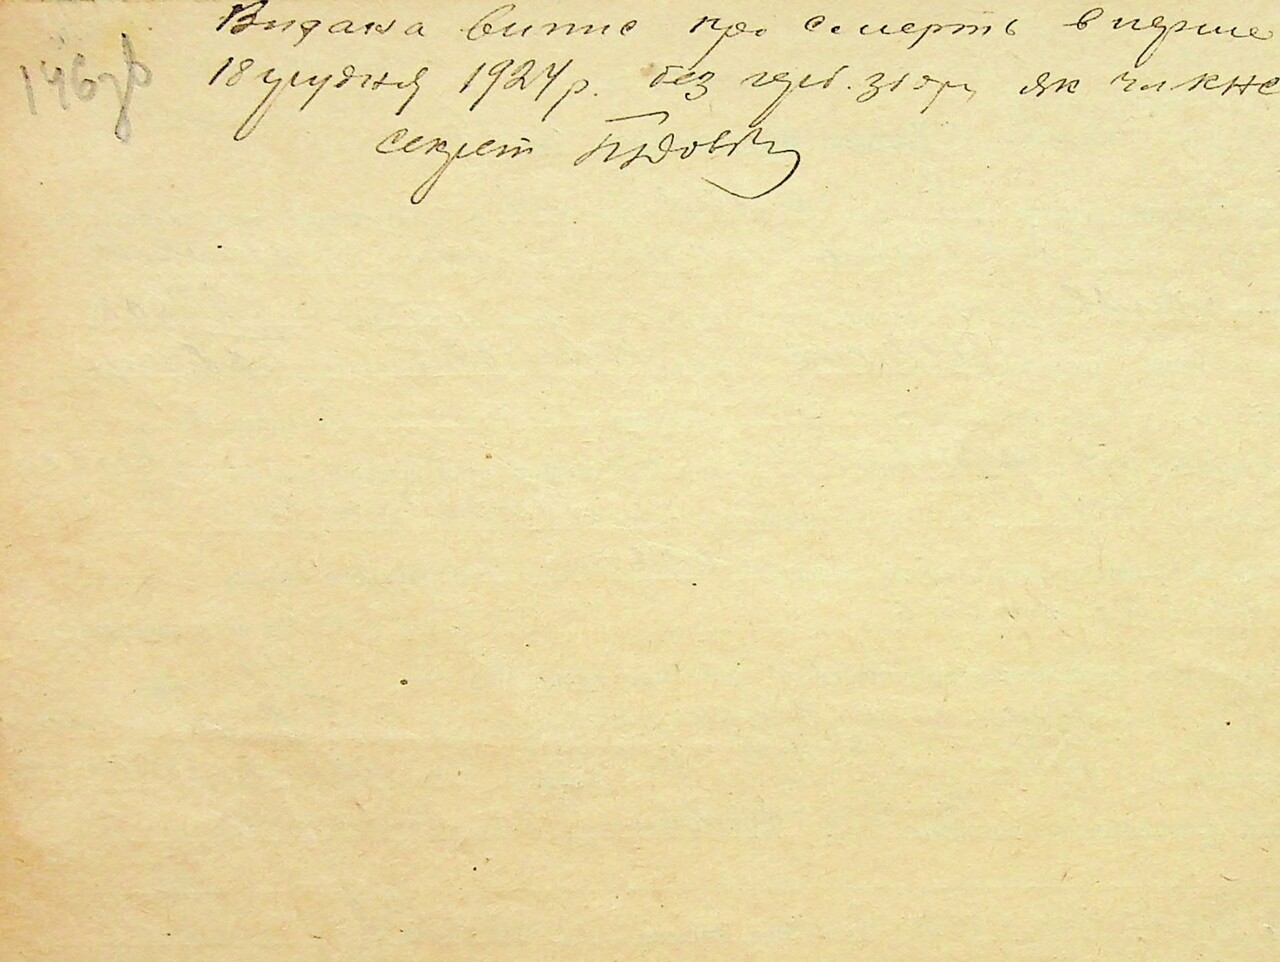 146зв
Видана випис про смерть вперше
18 грудня 1924 р. без герб. збору як
секрет